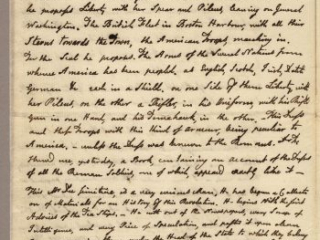 he proposes Liberty with her Spear and Pileus, leaning on General
Washington. The British Fleet in Boston Harbour, with all their
Sterns towards the Town, the American Troops marching in.
For the Seal he proposes. The Arms of the several Nations from
whence America has been peopled, as English, Scotch, Irish, Dutch
German &c. each in a Shield. on one side of them Liberty, with
her Pileus, on the other a Rifler, in his Uniform, with his Rifle
Gun in one Hand, and his Tomahawk, in the other. This Dress
and these Troops with this Kind of Armour, being peculiar to
America, unless the Dress was known to the Romans. Dr
shewed me, yesterday, a Book, containing an Account of the Dresses
of all the Roman Soldiers, one of which, appeared exactly like it.
This Mr. Du Simitiere is a very curious Man. He has begun a Collection
of Materials for an History of this Revolution. He begins with the first
Advices of the Tea Ships. He cutts out of the Newspapers, every Scrap of
Intelligence, and every Piece of Speculation, and
under the Head of the State to which they belong